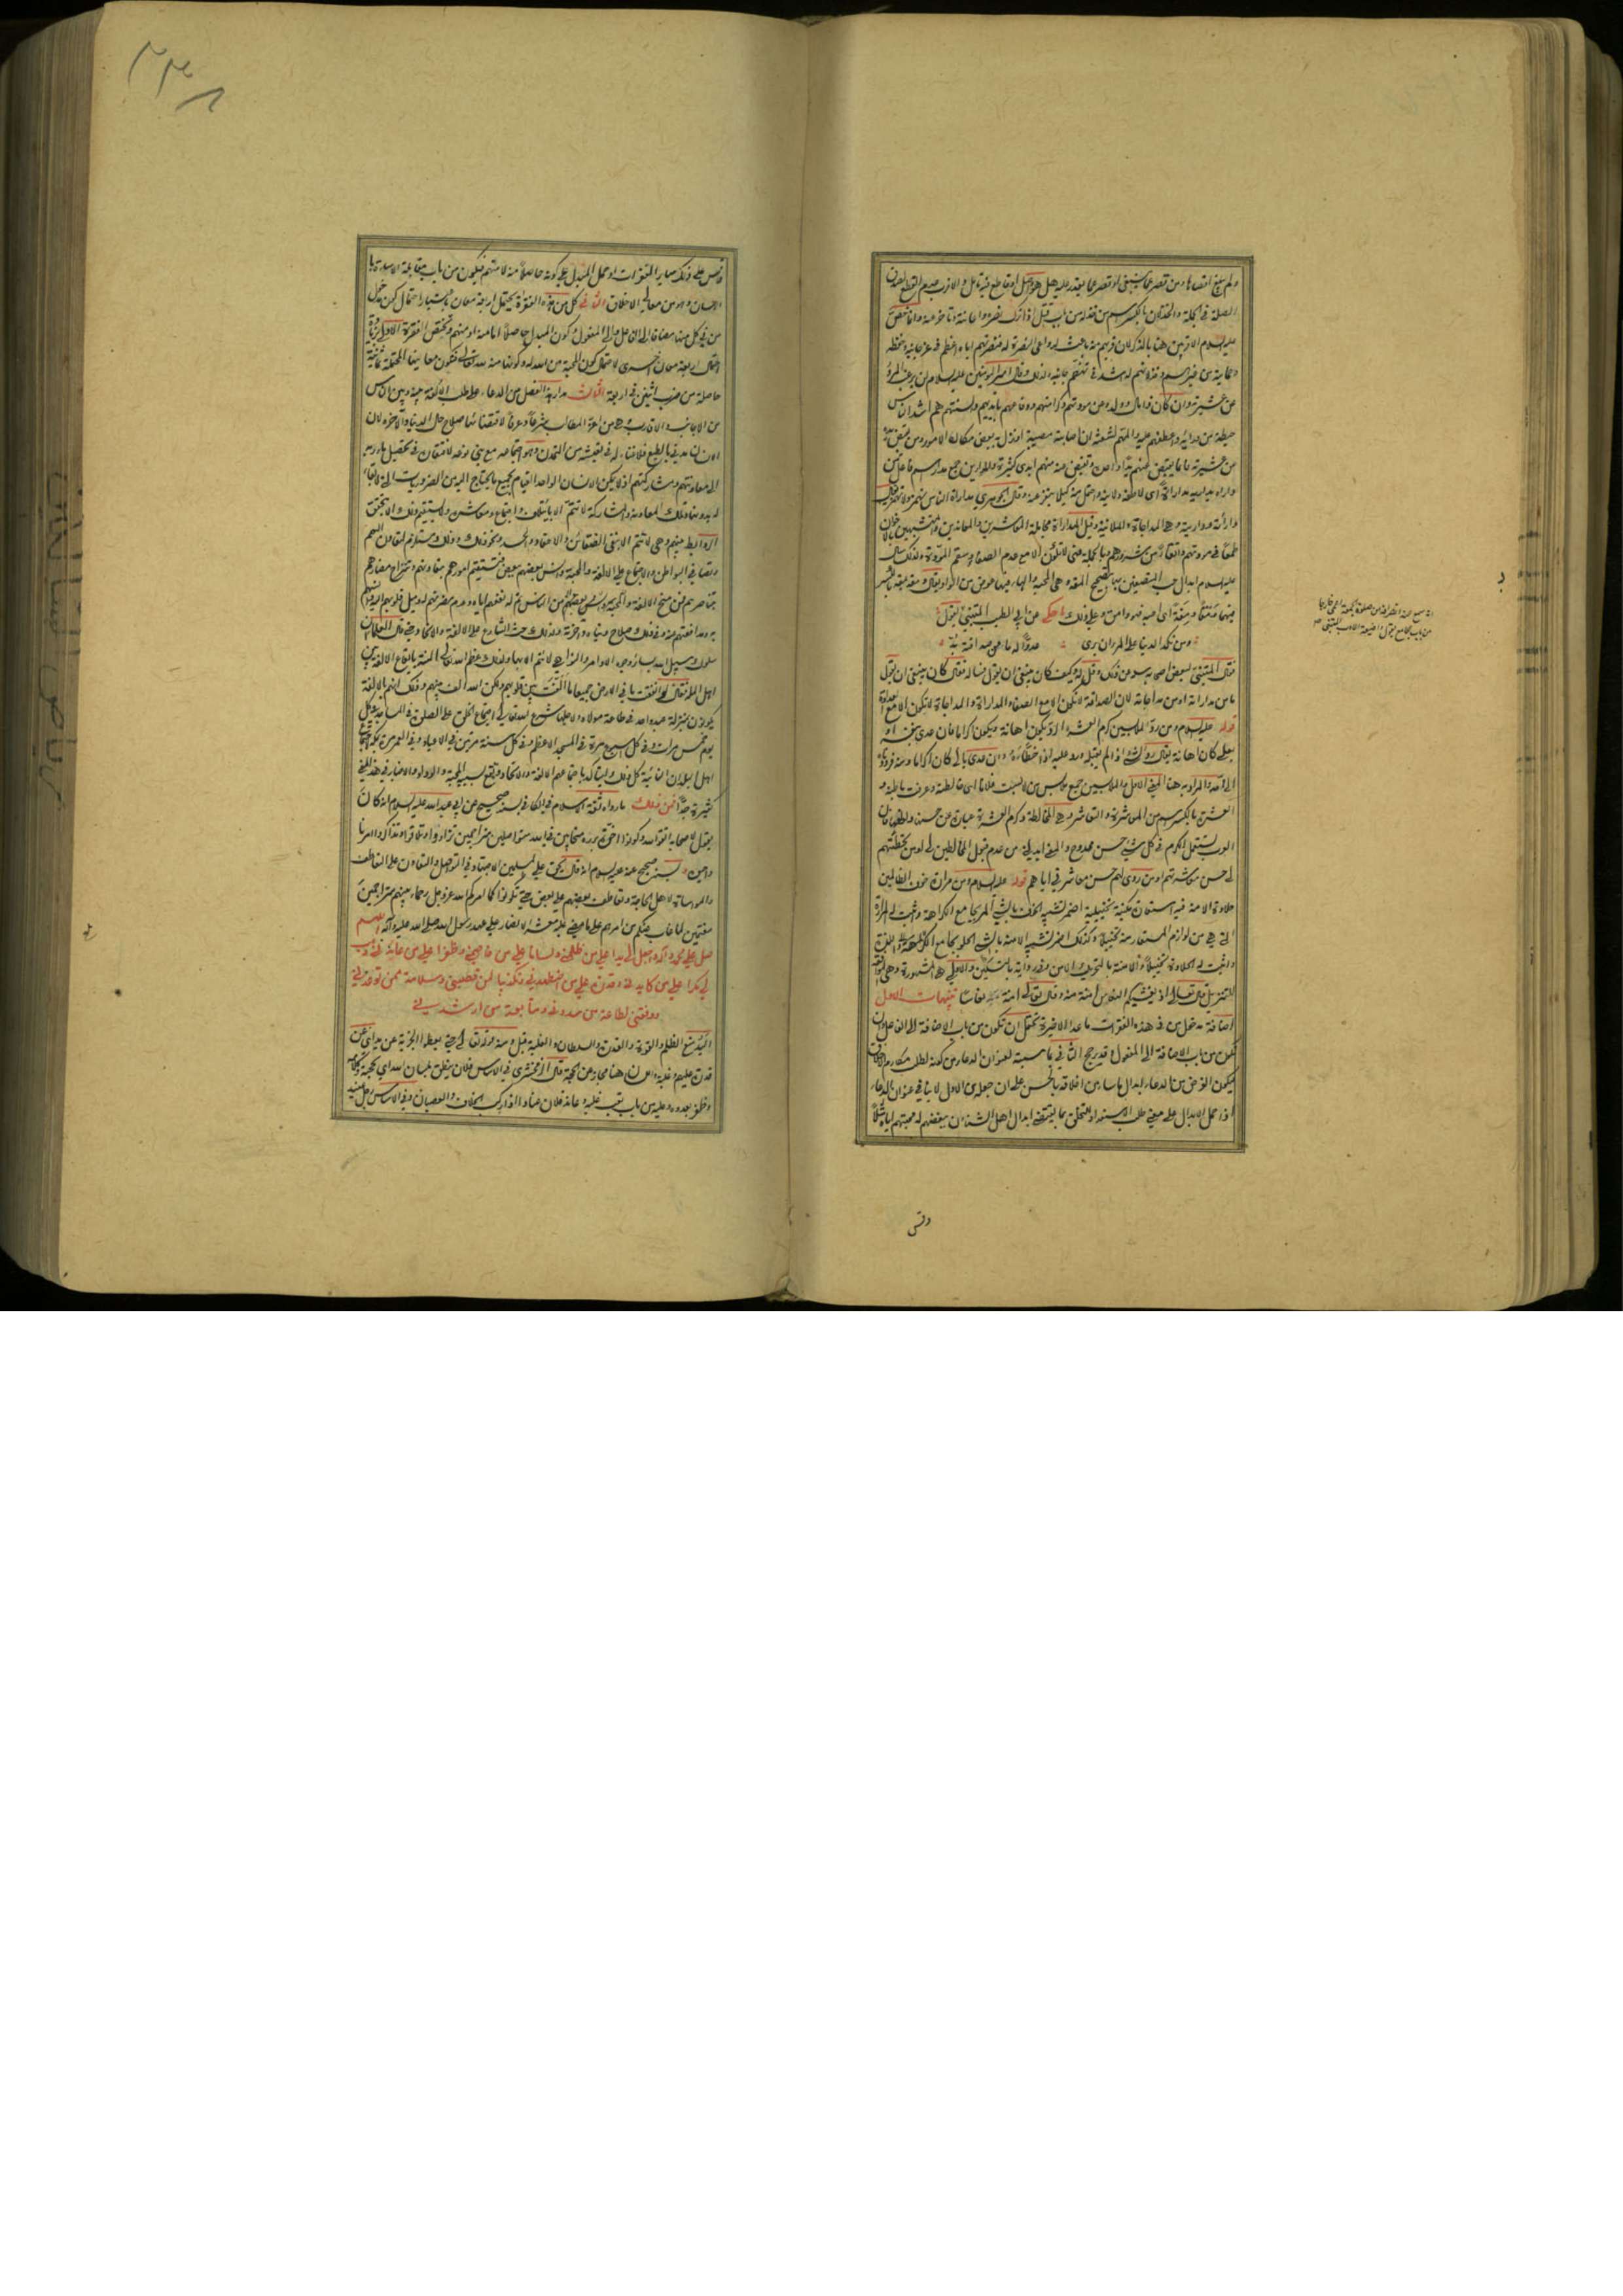 ولم يبلغ اقصاها ومن قصر عما ينبغي او قصر عما يقدر عليه هل هو واصل او قاطع فيه تامل والاقرب عدم القطع لصدق
الصلة في الجملة والخذلان بالكسر اسم من خذله من باب قتل اذا ترك نصره واعانته وتاخر عنه وانما خص
عليه السلام الاقربين هنا بالذكر لان قربهم منه باعث لدواعي النصرة له فنصرتهم اياه اعظم في عز جانبه وحفظه
وحمايته من غيرهم وخذلانهم له اشد في تهضم جانبه ولذلك قال امير المؤمنين عليه السلام لن يرغب المرء
عن عشيرته وان كان ذا مال وولد وعن مودتهم وكرامتهم ودفاعهم بايديهم والسنتهم هم اشد الناس
حيطة من ورائه واعطفهم عليه والمهم لشعثه ان اصابته مصيبة او نزل به بعض مكاره الامور ومن يقبض يده
عن عشيرته فانما يقبض عنهم يدا واحدة وتقبض عنه منهم ايدي كثيرة والمدارين جمع مدار اسم فاعل من
داراه يداريه مداراة اي لاطفه ولاينه واحتمل منه كيلا ينفر عنه وقال الجوهري مداراة الناس يهمز ولا يهمز يقال
دارأته وداريته وهي المداجاة والملاينة وقيل المداراة مجاملة المعاشرين والمعاندين والمتشبهين بالاخوان
طمعا في مودتهم واتقاء من شرورهم وبالجملة فهي لا تكون الا مع عدم الصفاء وسقم المودة ولذلك سال
عليه السلام ابدال حب المتصنعين بها بتصحيح المقة وهي المحبة والهاء فيها عوض من الواو يقال ومقه يمقه بالكسر
فيهما مقة اي احبه فهو وامق وعلى ذلك احكي عن ابي الطيب المتنبي بقول
ومن نكد الدنيا على الحر ان يرى عدوا له ما من صداقته بد
فقال المتنبي لبعض اصحابه سله عن ذلك وقل له وكيف كان ينبغي ان يقول فساله فقال كان ينبغي ان يقول
ما من مداراته او من مداجاته لان الصداقة لا تكون الا مع الصفاء والمداراة والمداجاة لا تكون الا مع العداوة
قوله عليه السلام ومن رد الملابسين كرم العشرة الرد يكون اهانة ويكون اكراما فان عدي بنفسه او
بعلى كان اهانة يقال رد الشيء اذا لم يقبله ورد عليه اذا خطأه وان عدي بالى كان اكراما ومنه فرددناه
الى امه والمراد به هنا المعنى الاول والملابسين جمع ملابس من لابست فلانا اي خالطته وعرفت باطنه و
العشرة بالكسر اسم من المعاشرة والتعاشر وهي المخالطة وكرم العشرة عبارة عن حسنها ولطفها فان
العرب تستعمل الكرم في كل شيء حسن ممدوح والمعنى ابدلني من عدم قبول المخالطين لي او من تخطئتهم
لي حسن معاشرتهم او من ردي لهم حسن معاشرتي اياهم قوله عليه السلام ومن مرارة خوف الظالمين
حلاوة الامنة فيه استعارة مكنية تخييلية اضمر تشبيه الخوف بالشيء المر بجامع الكراهة واثبت له المرارة
التي هي من لوازم المستعار منه تخييلا وكذلك اضمر تشبيه الامنة بالشيء الحلو بجامع الملائمة واللذة
واثبت له الحلاوة تخييلا والامنة بالتحريك الامن وفي رواية بالتسكين والاولى هي المشهورة وهي لغة
التنزيل قال تعالى اذ يغشيكم النعاس امنة منه وقال تعالى امنة نعاسا تنبيهات الاول
اضافة مدخول من في هذه الفقرات ما عدا الاخيرة يحتمل ان تكون من باب الاضافة الى الفاعل وان
تكون من باب الاضافة الى المفعول وقد يرجح الثاني بمناسبته لعنوان الدعاء من كونه لطلب مكارم الاخلاق
فيكون الغرض من الدعاء ابدال ما ساء من اخلاقه بالحسن على ان حمله على الاول لا ينافي عنوان الدعاء
اذا حمل الابدال على معنى طلب الاستعداد والتخلق بما يقتضي ابدال اهل الشنآن ببغضهم له محبتهم اياه مثلا
وقس
وقس على ذلك سائر الفقرات او حمل المبدل على كونه حاصلا منه لا منهم فيكون من باب مقابلة الاساءة با
لاحسان وهو من معالي الاخلاق الثاني كل من هذه الفقرات يحتمل اربعة معان باعتبار احتمال كون مدخول
من في كل منها مضافا الى الفاعل والى المفعول وكون المبدل حاصلا اما منه او منهم وتختص الفقرة الاولى بزيادة
احتمال اربعة معان اخرى لاحتمال كون المحبة من الله له وكونها منه لله تعالى فتكون معانيها المحتملة ثمانية
حاصلة من ضرب اثنين في اربعة الثالث مدار هذا الفصل من الدعاء على طلب الالفة بينه وبين الناس
من الاجانب والاقارب وهي من اعزة المطالب شرعا وعرفا لاقتضائها صلاح حال الدنيا والآخرة لان
الانسان مدني بالطبع فلا بد له في تعيشه من التمدن وهو اجتماعه مع بني نوعه لافتقاره في تحصيل ماربه
الى معاونتهم ومشاركتهم اذ لا يمكن الانسان الواحد القيام بجميع ما يحتاج اليه من الضروريات التي لا بقاء
له بدونها وتلك المعاونة والمشاركة لا تتم الا بائتلاف واجتماع ومعاشرة ولا يستقيم ذلك الا بتحقق
الروابط بينهم وهي لا تتم الا بنفي الضغائن والاحقاد والحسد ونحو ذلك وذلك مستلزم لتعاون الهمم
وتصافي البواطن والاجتماع على الالفة والمحبة وانس بعضهم ببعض فتستقيم امورهم بتعاونهم وتنزاح مضارهم
بتناصرهم فمن منح الالفة والمحبة من الناس تم له نفعهم اياه وعدم مضرتهم له وميل قلوبهم اليه
به ومدافعتهم عنه وفي ذلك صلاح دنياه وآخرته ولذلك حث الشارع على الالفة والاتحاد حتى قال العلماء ان
سلوك سبيل الله بسائر وجوه الاوامر والنواهي لا يتم الا بها ولذلك عظم الله تعالى المنة بايقاع الالفة بين
اهل الملة فقال لو انفقت ما في الارض جميعا ما الفت بين قلوبهم ولكن الله الف بينهم وذلك انهم بالالفة
يكونون بمنزلة عبد واحد في طاعة مولاه ولاجلها شرع الله تعالى اجتماع الخلق على الصلوة في المساجد في كل
يوم خمس مرات وفي كل اسبوع مرة في المسجد الاعظم وفي كل سنة مرتين في الاعياد وفي العمر مرة بمكة لاجتماع
اهل البلدان النائية كل ذلك ليتاكد باجتماعهم الالفة والاتحاد وتقع بسببه المحبة والوداد والاخبار في هذا المعنى
كثيرة جدا فمن ذلك ما رواه ثقة الاسلام في الكافي بسند صحيح عن ابي عبد الله عليه السلام انه كان
يقول لاصحابه اتقوا الله وكونوا اخوة بررة متحابين في الله متواصلين متراحمين تزاوروا وتلاقوا وتذاكروا امرنا
واحيوه وبسند صحيح عنه عليه السلام انه قال يحق على المسلمين الاجتهاد في التواصل والتعاون على التعاطف
والمواساة لاهل الحاجة وتعاطف بعضهم على بعض حتى تكونوا كما امركم الله عز وجل رحماء بينهم متراحمين
مغتمين لما غاب عنكم من امرهم على ما مضى عليه معشر الانصار على عهد رسول الله صلى الله عليه وآله اللهم
صل على محمد وآله واجعل لي يدا على من ظلمني ولسانا على من خاصمني وظفرا بمن عاندني وهب
لي مكرا على من كايدني وقدرة على من اضطهدني وتكذيبا لمن قصبني وسلامة ممن توعدني
ووفقني لطاعة من سددني ومتابعة من ارشدني
اليد تمنع الظلم والقوة والقدرة والسلطان والغلبة قيل ومنه قوله تعالى حتى يعطوا الجزية عن يد اي عن
قدرة عليهم وغلبة واللسان هنا مجاز عن الحجة قال الزمخشري في الاساس فلان ينطق بلسان الله اي بحجته وكلامه
وظفر بعدوه وعليه من باب تعب غلبه وعانده فلان عنادا اذا ركب الخلاف والعصيان وفي الاساس رجل عنيد